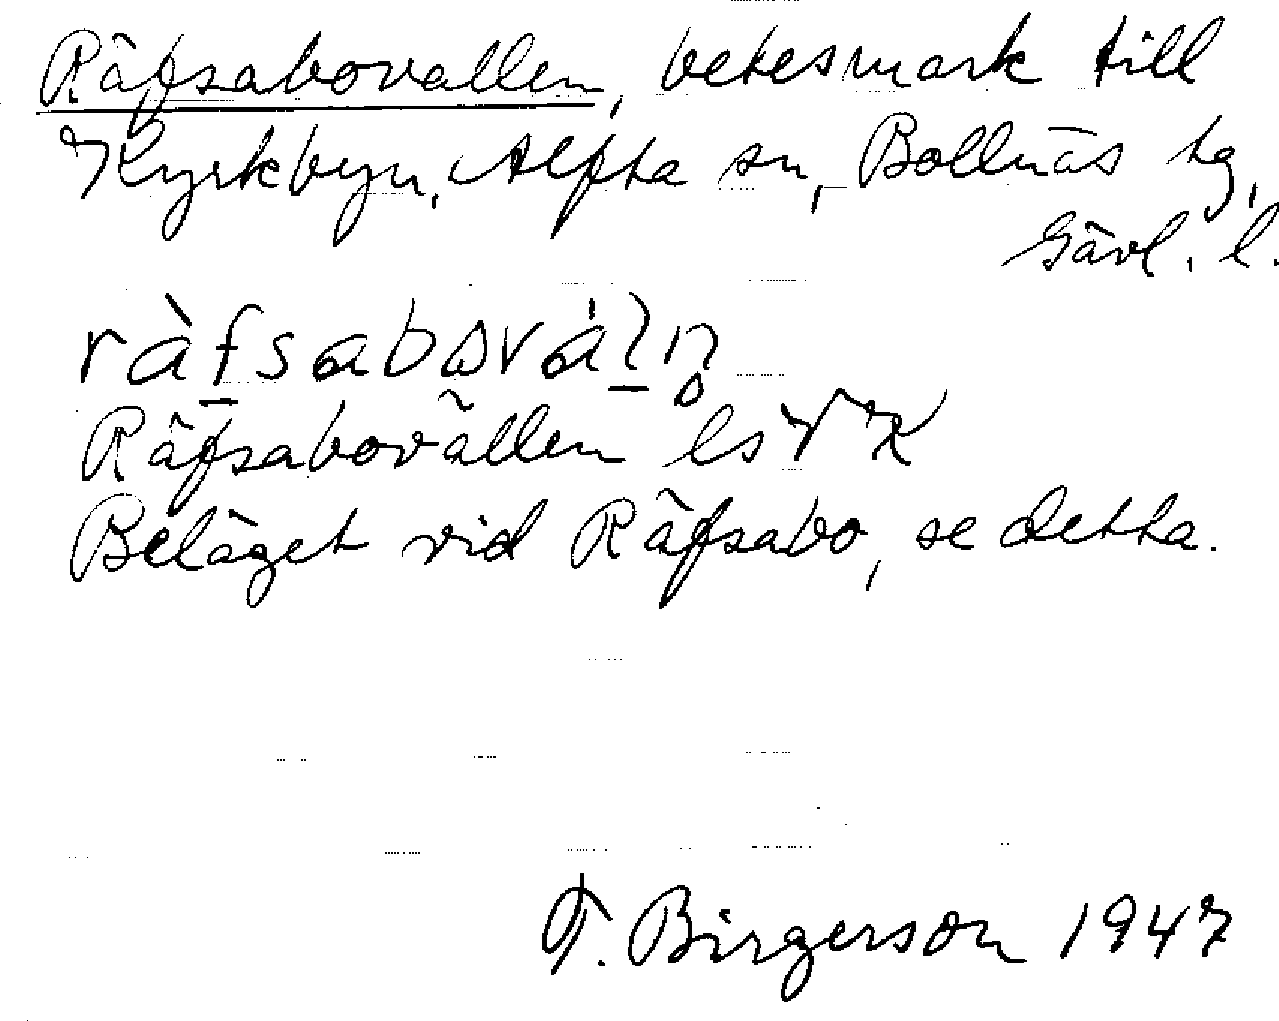 Räfsabovallen, betesmark till
Kyrkbyn, Alfta sn, Bollnäs tg,
Gävl. l.
Räfsabovällen
Beläget vid Räfsabo, se detta.
T. Birgerson 1947